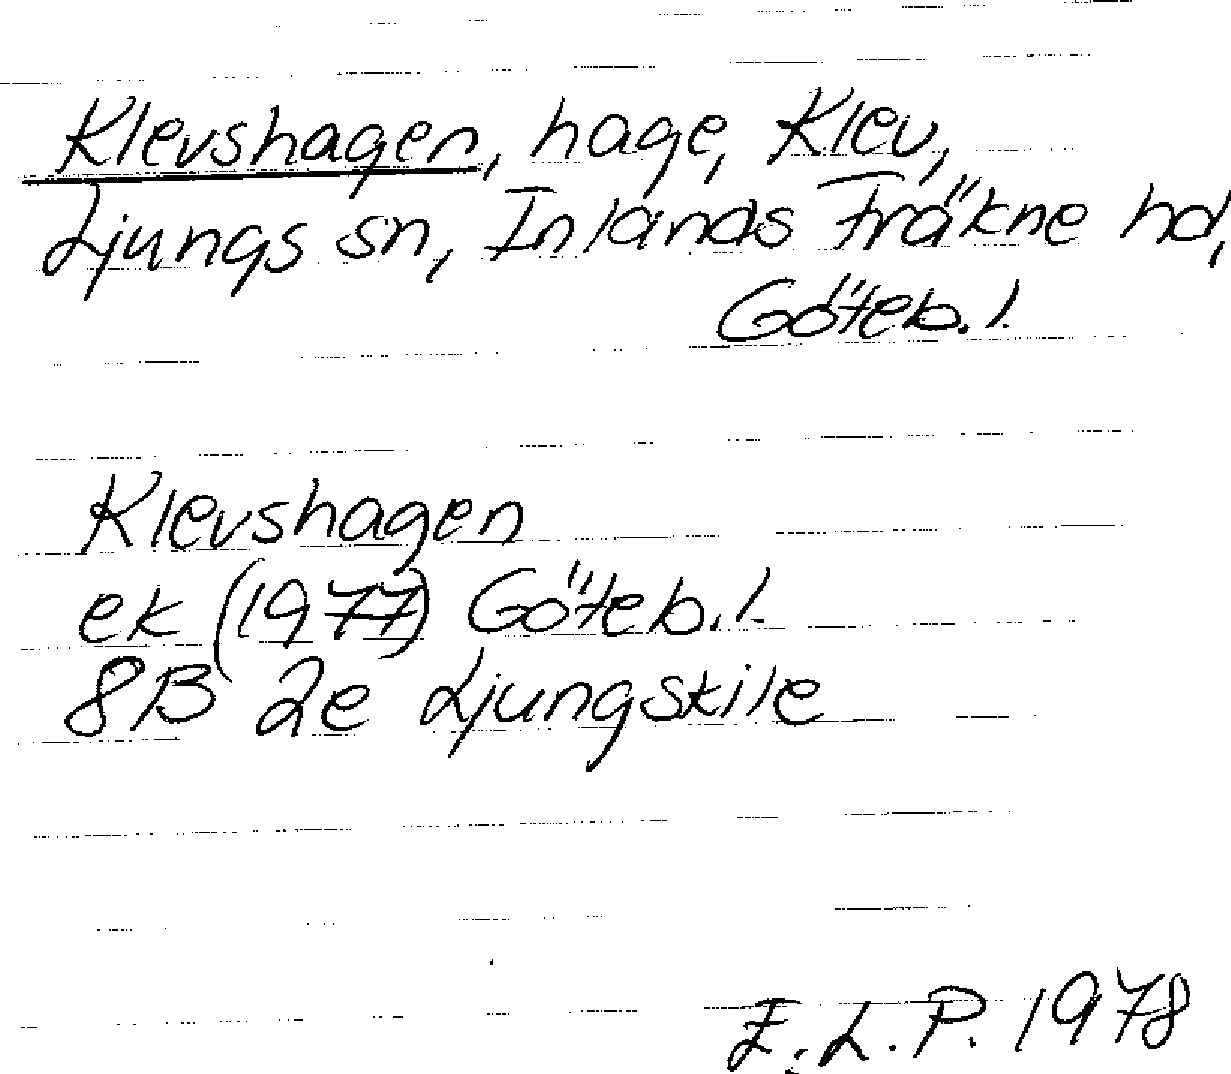 Klevshagen, hage, Klev,
Ljungs sn, Inlands Fräkne hd,
Göteb. l.
Klevshagen
ek (1977) Göteb. l.
8B 2e Ljungskile
E. L. P. 1978